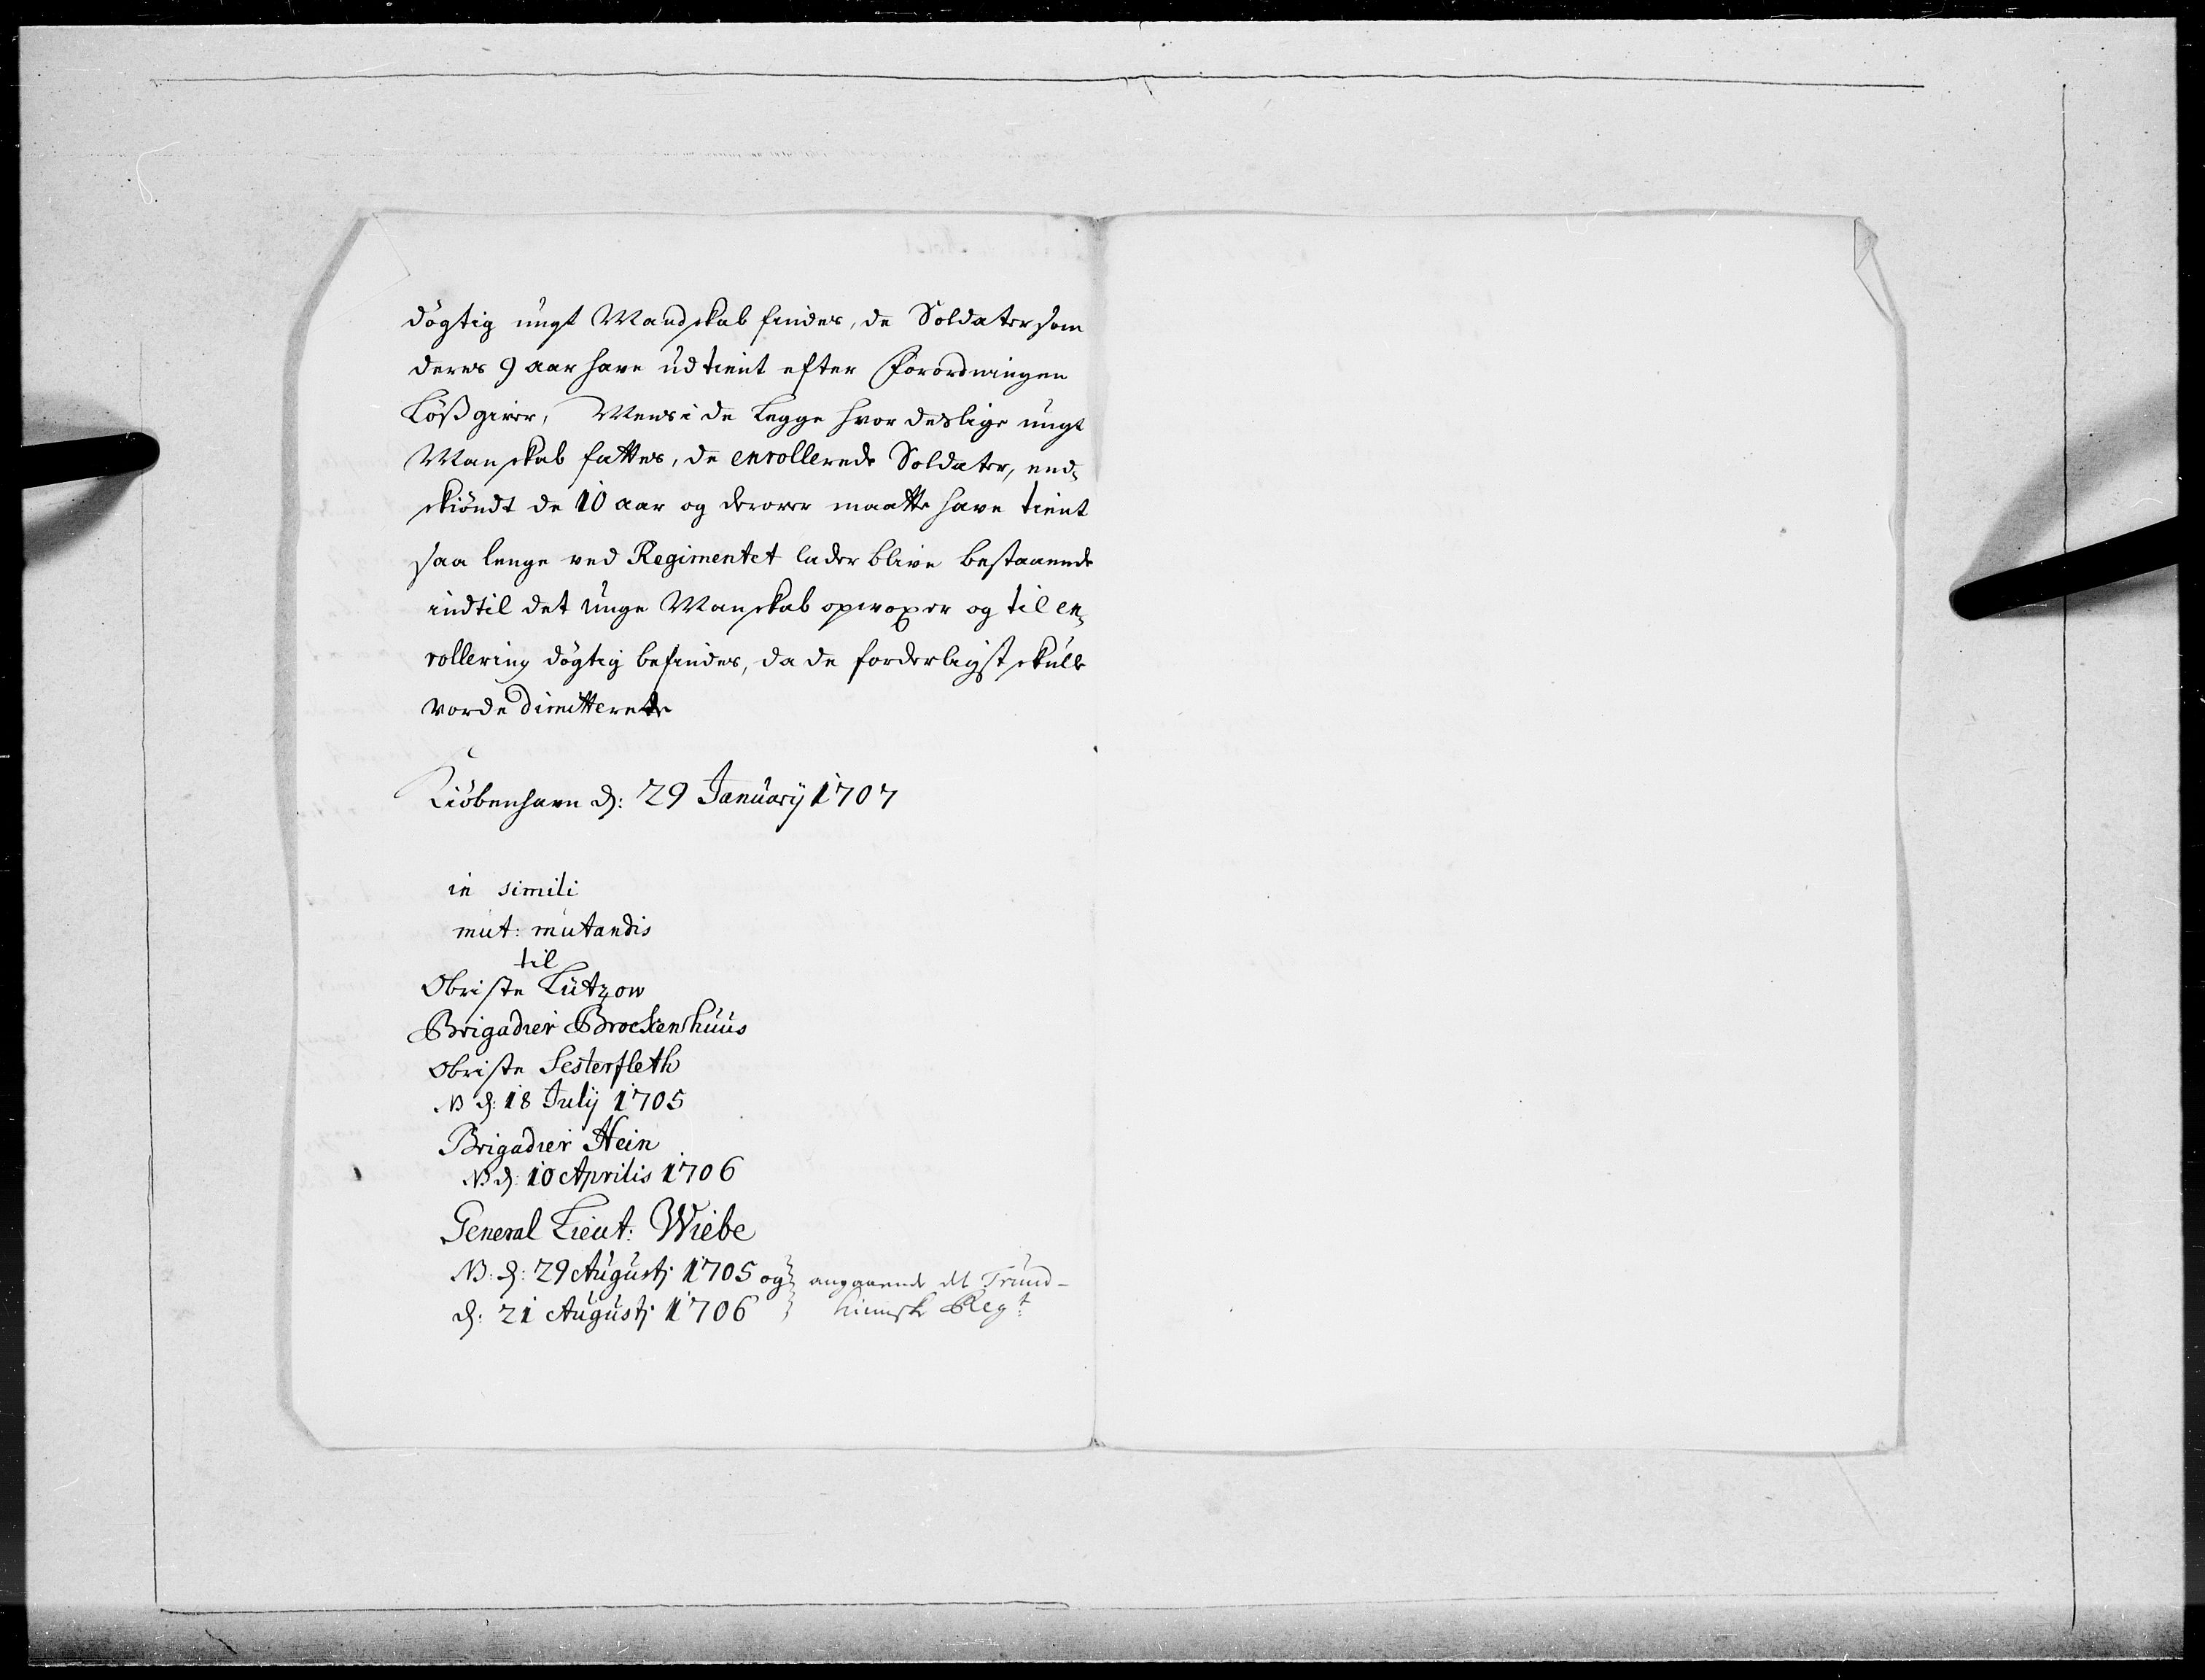 døgtig ungt Mandskab findes, de Soldater som
deres 9 aar have udtient efter Forordningen
Løßgiver, Mens i de Legge hvor deslige ungt
Manskab fattes, de enrollerede Soldater, end¬
skiøndt de 10 aar og derover maatte have tient
saa lenge ved Regimentet lader blive bestaaende
indtil det unge Manskab opvoxer og til en¬
rollering døgtig befindes, da de forderligst skulle
vorde dimitterede
Kiøbenhavn d: 29 Januarij 1707
in simili
mut: mutandis
til
Obriste Lützow
Brigadier Brockenhuus
Obriste Sesterfleth
NB d: 18 Julij 1705
Brigadier Hein
NB d: 10 Aprilis 1706
General Lieut: Wiebe
NB: d: 29 Augustj 1705 og angaaende det Trund-
d: 21 Augustj 1706 hiemske Regt: